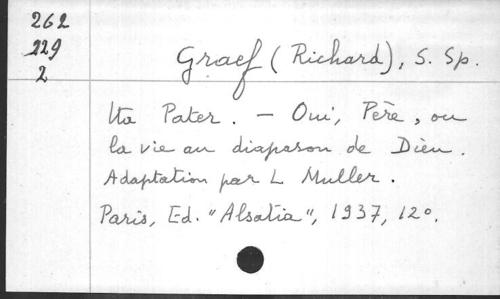 262
229
2
Graef (Richard), S. Sp.
Ita Pater. — Oui, Père, ou
la vie au diapason de Dieu.
Adaptation par L Muller.
Paris, Ed. "Alsatia", 1937, 12°.